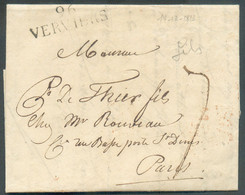 96
VERVIERS
Monsieur
De Thier fils
Chez Mr Rouveau
Rue Basse porte St Denis
Paris
7